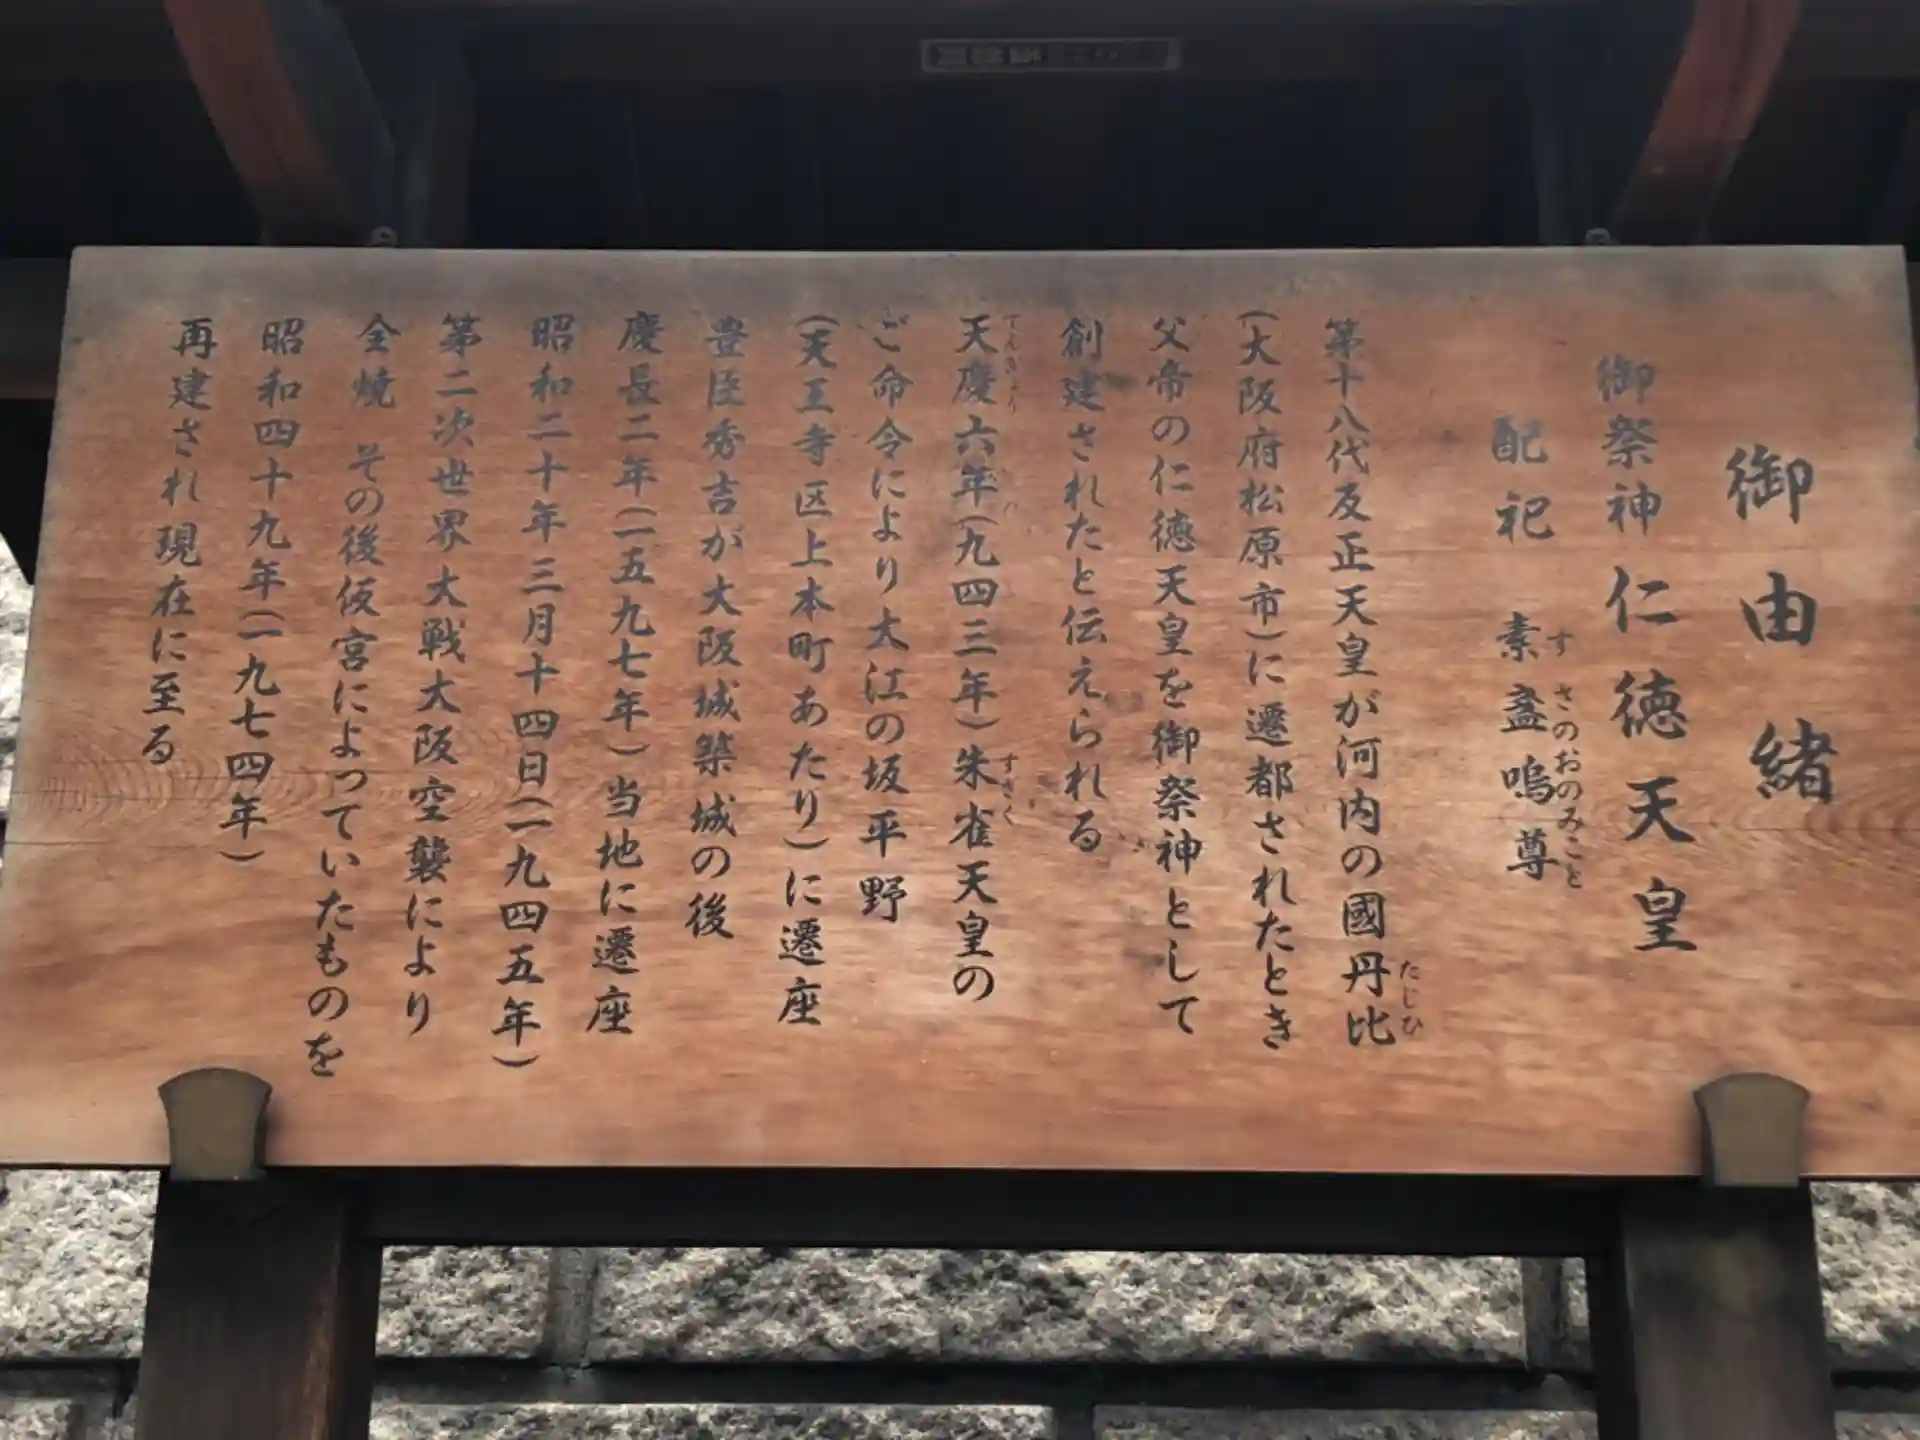 御由緒
御祭神 仁徳天皇
配祀 素盞嗚尊
すさのおのみこと
第十八代反正天皇が河内の國丹比
たじひ
(大阪府松原市)に遷都されたとき
父帝の仁徳天皇を御祭神として
創建されたと伝えられる
天慶六年(九四三年)朱雀天皇の
てんぎょう
すざく
ご命令により大江の坂平野
(天王寺区上本町あたり)に遷座
豊臣秀吉が大阪城築城の後
慶長二年(一五九七年)当地に遷座
昭和二十年三月十四日(一九四五年)
第二次世界大戦大阪空襲により
全焼 その後仮宮によっていたものを
昭和四十九年(一九七四年)
再建され現在に至る